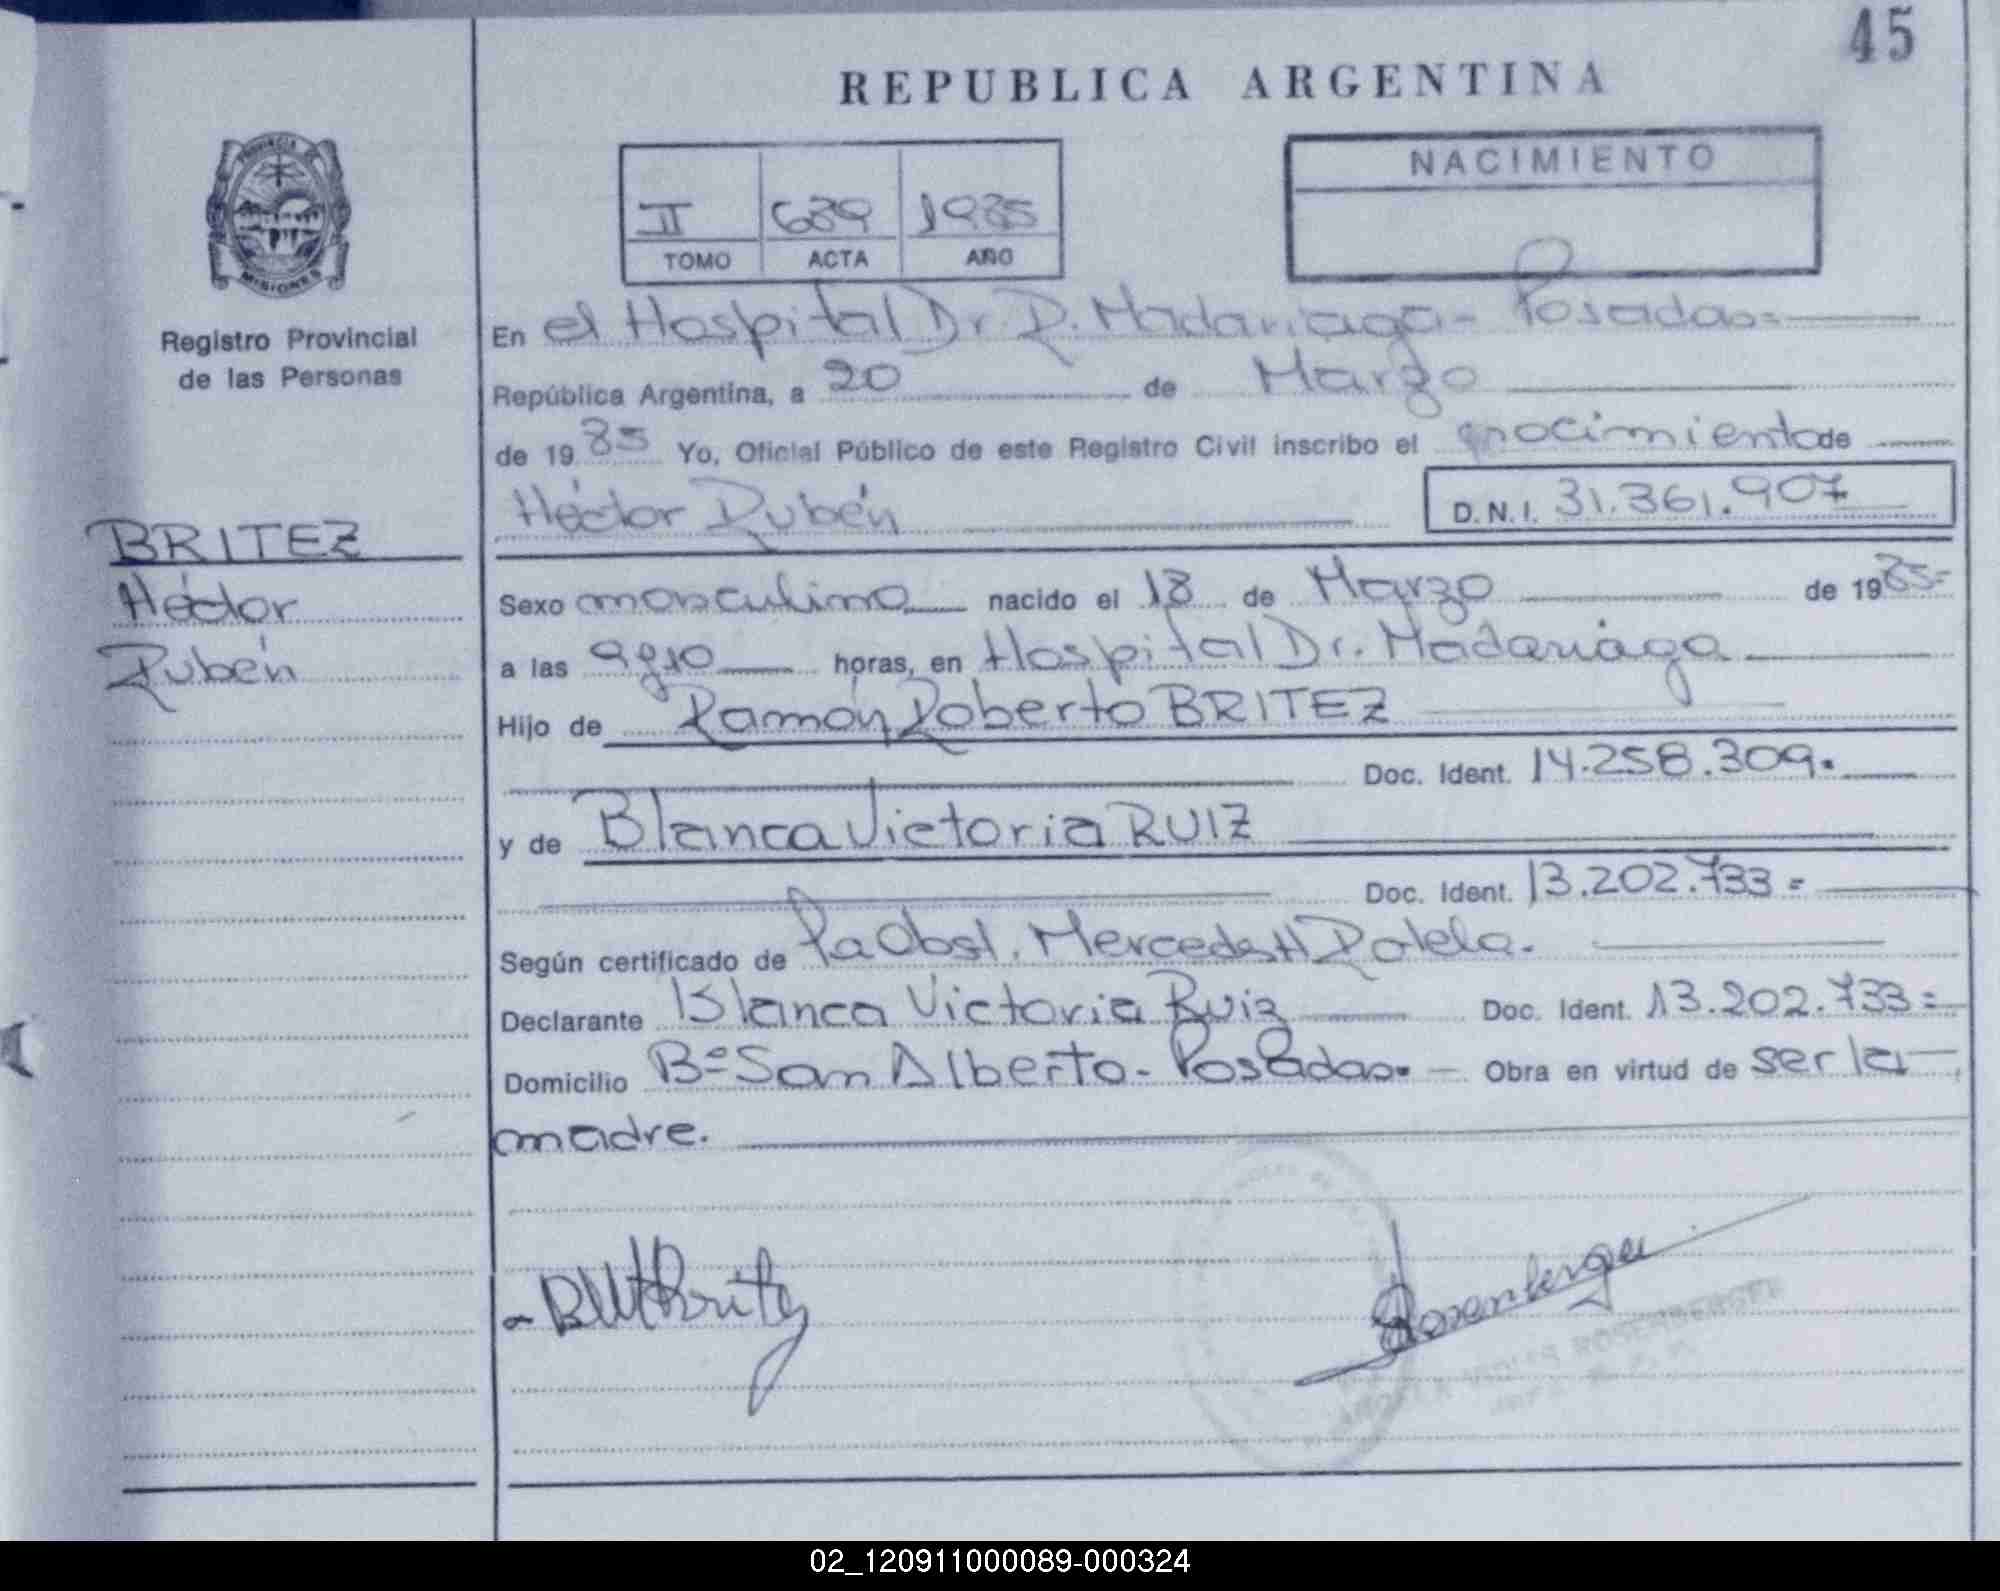 45
REPUBLICA ARGENTINA
PROVINCIA DE
MISIONES
Registro Provincial
de las Personas
II 689 1985
TOMO ACTA AÑO
NACIMIENTO
En el Hospital Dr. R. Madariaga - Posadas=
República Argentina, a 20 de Marzo
de 1985 Yo, Oficial Público de este Registro Civil inscribo el nacimiento de
Héctor Rubén D.N.I. 31.361.907
BRITEZ
Héctor
Rubén
Sexo masculino nacido el 18 de Marzo de 1985=
a las 9y10 horas, en Hospital Dr. Madariaga
Hijo de Ramón Roberto BRITEZ
Doc. Ident. 14.258.309.
y de Blanca Victoria RUIZ
Doc. Ident. 13.202.733=
Según certificado de Pa Obst. Mercedes H
Declarante Blanca Victoria Ruiz Doc. Ident. 13.202.733=
Domicilio Bº San Alberto - Posadas. Obra en virtud de ser la
madre.
Rosenberger
ROSENBERGER
02_120911000089-000324